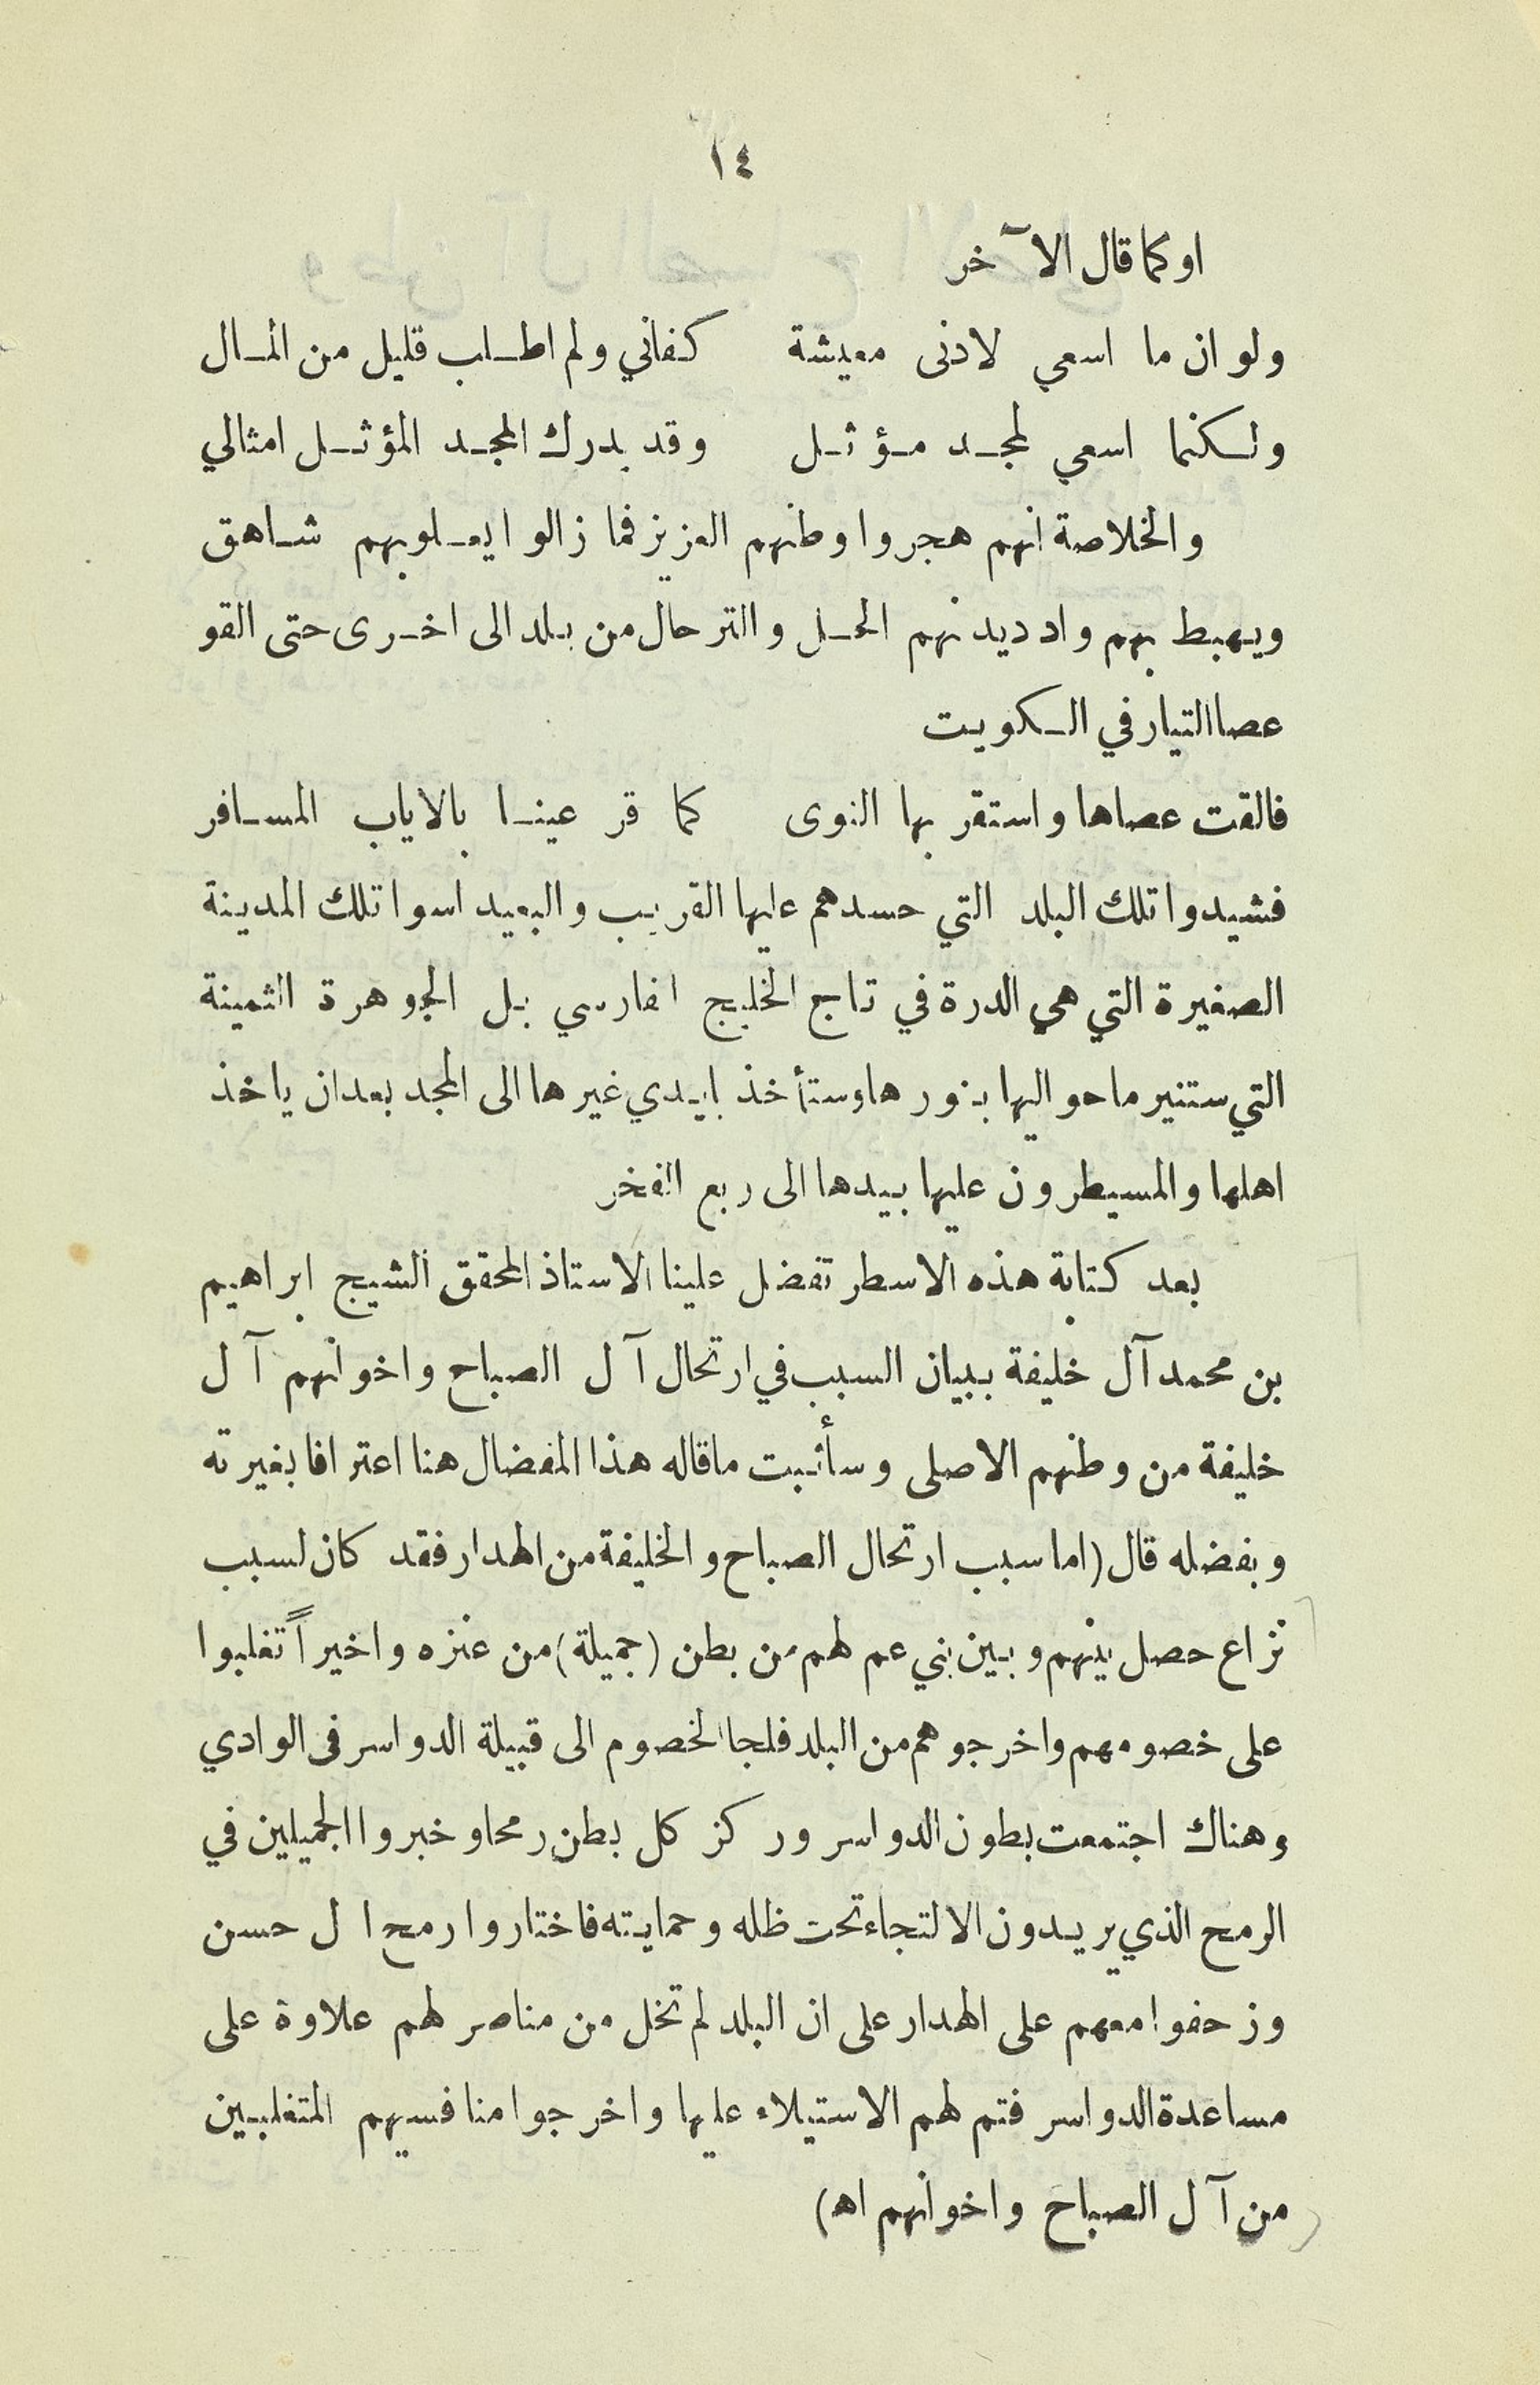 ١٤
او كما قال الآخر
ولو ان ما اسعي لادنى معيشة كفاني ولم اطلب قليل من المال
ولكنما اسعي لمجد مؤثل وقد يدرك المجد المؤثل امثالي
والخلاصة انهم هجروا وطنهم العزيز فما زالوا يعلوبهم شاهق
ويهبط بهم واد ديدنهم الحل والترحال من بلد الى اخرى حتى القو
عصا التيار في الكويت
فالقت عصاها واستقر بها النوى كما قر عينا بالاياب المسافر
فشيدوا تلك البلد التي حسدهم عليها القريب والبعيد اسوا تلك المدينة
الصغيرة التي هي الدرة في تاج الخليج الفارسي بل الجوهرة الثمينة
التي ستنير ما حواليها بنورها وستأخذ بايدي غيرها الى المجد بعد ان ياخذ
اهلها والمسيطرون عليها بيدها الى ربع الفخر
بعد كتابة هذه الاسطر تفضل علينا الاستاذ المحقق الشيج ابراهيم
بن محمد آل خليفة ببيان السبب في ارتحال آل الصباح واخوانهم آل
خليفة من وطنهم الاصلى وسأثبت ماقاله هذا المفضال هنا اعترافا بغيرته
وبفضله قال (اما سبب ارتحال الصباح والخليفة من الهدار فقد كان لسبب
نزاع حصل بينهم وبين بني عم لهم من بطن (جميلة) من عنزه واخيراً تغلبوا
على خصومهم واخرجوهم من البلد فلجا الخصوم الى قبيلة الدواسر فى الوادي
وهناك اجتمعت بطون الدواسر وركز كل بطن رمحا وخبروا الجميلين في
الرمح الذي يريدون الالتجاء تحت ظله وحمايته فاختاروا رمح ال حسن
وزحفوا معهم على الهدار على ان البلد لم تخل من مناصر لهم علاوة على
مساعدة الدواسر فتم لهم الاستيلاء عليها واخرجوا منافسيهم المتغلبين
من آل الصباح واخوانهم اه)